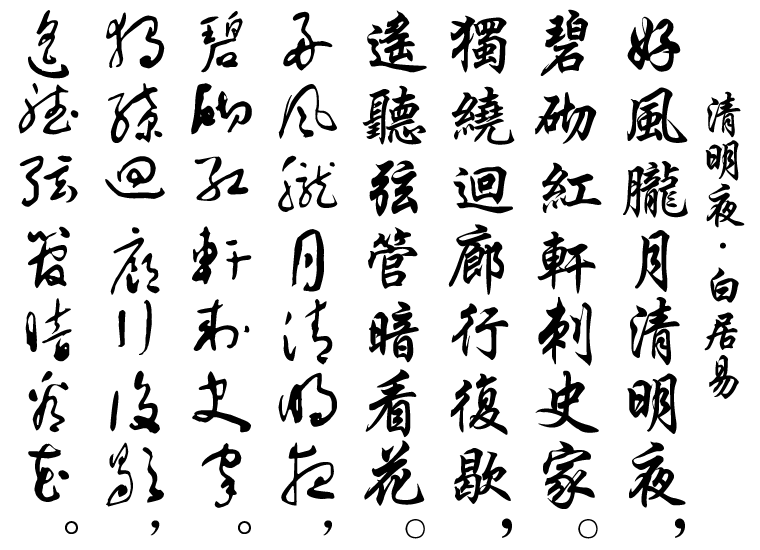 清明夜·白居易
好風朧月清明夜，
碧砌紅軒刺史家。
獨繞迴廊行復歇，
遙聽弦管暗看花。
好風朧月清明夜，
碧砌紅軒刺史家。
獨繞迴廊行復歇，
遙聽弦管暗看花。